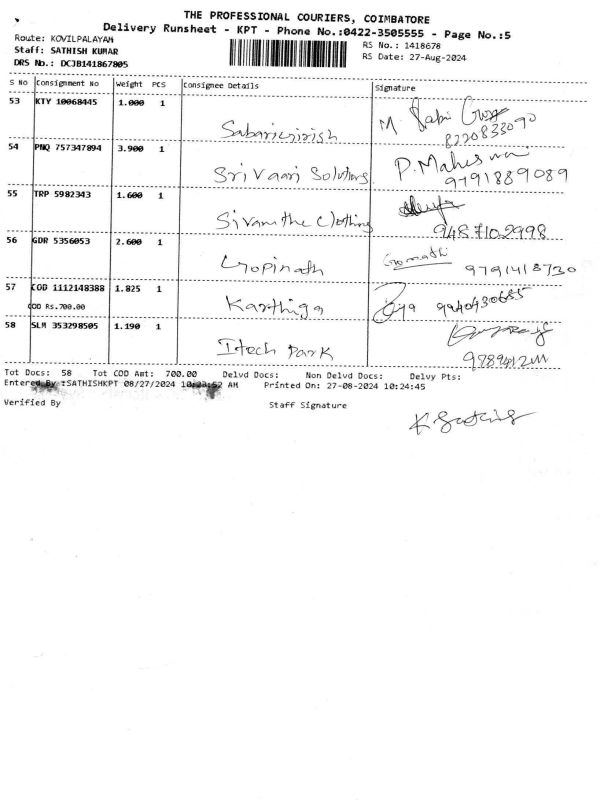 THE PROFESSIONAL COURIERS, COIMBATORE
Delivery Runsheet - KPT - Phone No.:0422-3505555 - Page No.:5
Route: KOVILPALAYAM
RS No.: 1418678
Staff: SATHISH KUMAR
RS Date: 27-Aug-2024
DRS No.: DCJB141867805
S No Consignment No Weight PCS Consignee Details Signature
53 KTY 10068445 1.000 1 Sabarigirish M.
8220833090
54 PNQ 757347894 3.900 1 Sri Vaari Solutions P. Maheswari
9791889089
55 TRP 5982343 1.600 1 Sivamithe Clothing
9487102998
56 GDR 5356053 2.600 1 Gopinath Gomathi 9791418730
57 COD 1112148388 1.825 1 Karthiga 9940930655
COD Rs.700.00
58 SLM 353298505 1.190 1 Itech Park
Tot Docs: 58 Tot COD Amt: 700.00 Delvd Docs: Non Delvd Docs: Delvy Pts:
Entered By :SATHISHKPT 08/27/2024 10:23:52 AM Printed On: 27-08-2024 10:24:45
Verified By Staff Signature